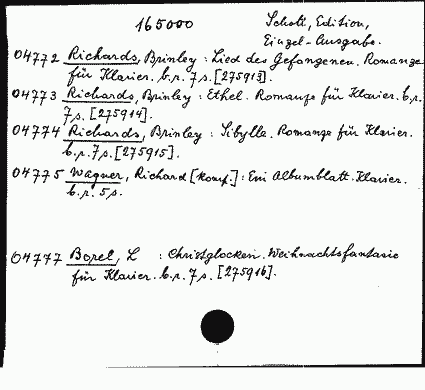 165000
Schott, Edition,
Einzel-Ausgabe.
04772 Richards, Brinley : Lied des Gefangenen. Romanze
für Klavier. b.r. 7 s. [275913].
04773 Richards, Brinley : Ethel. Romanze für Klavier. b.r.
7 s. [275914].
04774 Richards, Brinley : Sibylle. Romanze für Klavier.
b.r. 7 s. [275915].
04775 Wagner, Richard [Komp.] : Ein Albumblatt. Klavier.
b.r. 5 s.
04777 Borel, L : Christglocken. Weihnachtsfantasie
für Klavier. b.r. 7 s. [275916].